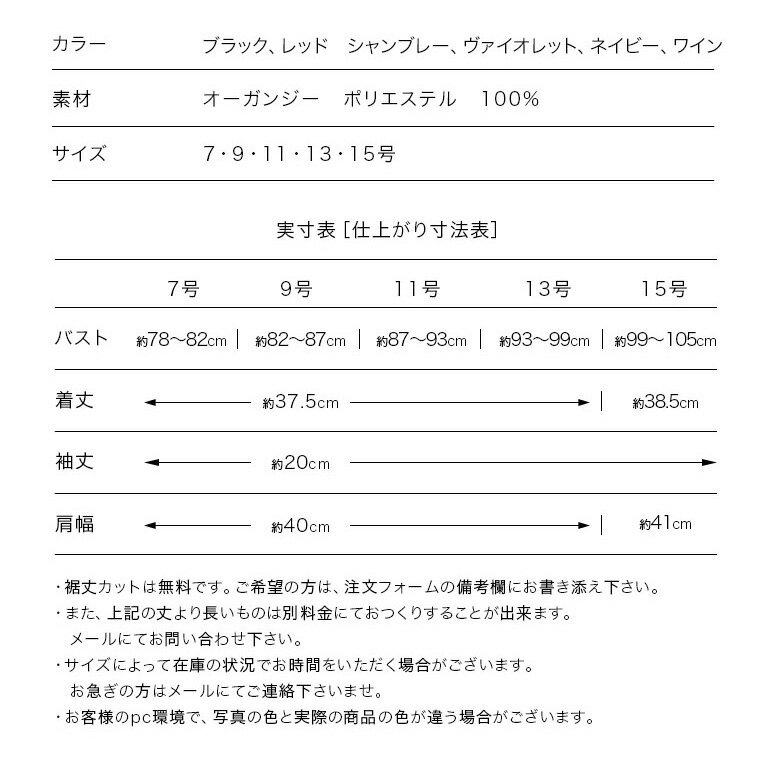 カラー ブラック、レッド　シャンブレー、ヴァイオレット、ネイビー、ワイン
素材 オーガンジー　ポリエステル　100%
サイズ 7・9・11・13・15号
実寸表［仕上がり寸法表］
7号 9号 11号 13号 15号
バスト 約78〜82cm 約82〜87cm 約87〜93cm 約93〜99cm 約99〜105cm
着丈 約37.5cm 約38.5cm
袖丈 約20cm
肩幅 約40cm 約41cm
・裾丈カットは無料です。ご希望の方は、注文フォームの備考欄にお書き添え下さい。
・また、上記の丈より長いものは別料金にておつくりすることが出来ます。
メールにてお問い合わせ下さい。
・サイズによって在庫の状況でお時間をいただく場合がございます。
お急ぎの方はメールにてご連絡下さいませ。
・お客様のpc環境で、写真の色と実際の商品の色が違う場合がございます。